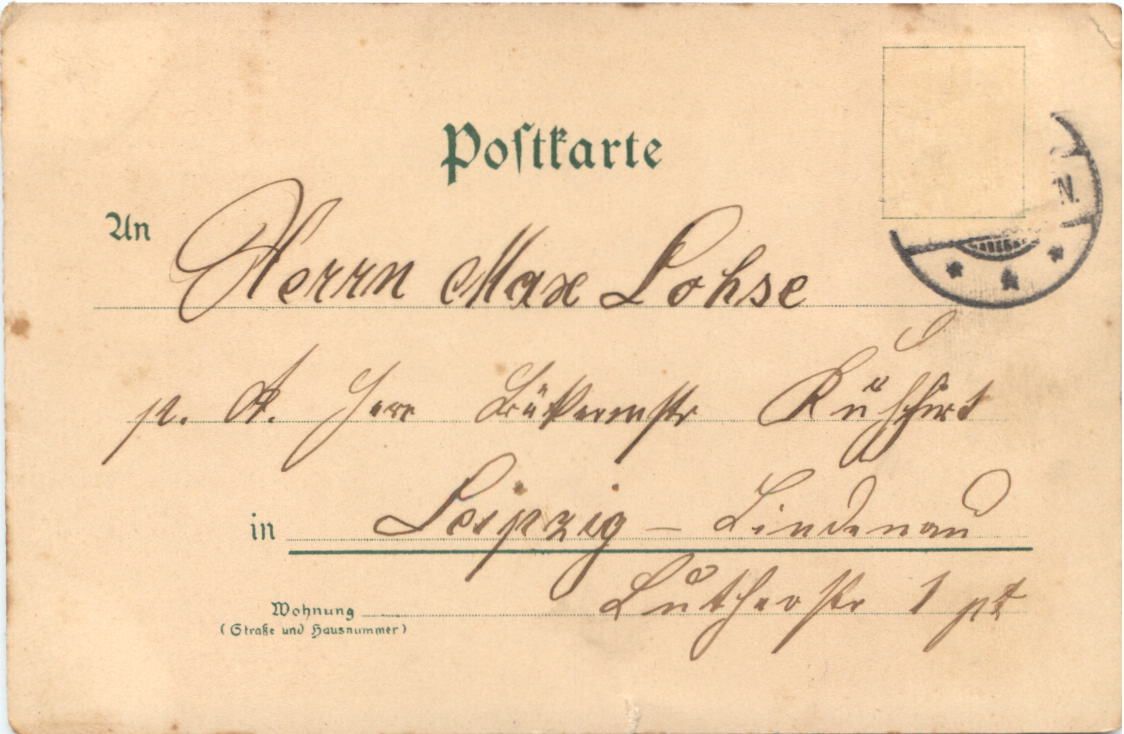 Postkarte
An Herrn Max Lohse
p. A. Herr Bäckermstr Kühhirt
in Leipzig - Lindenau
Lutherstr 1 pt
Wohnung
(Straße und Hausnummer)
N.